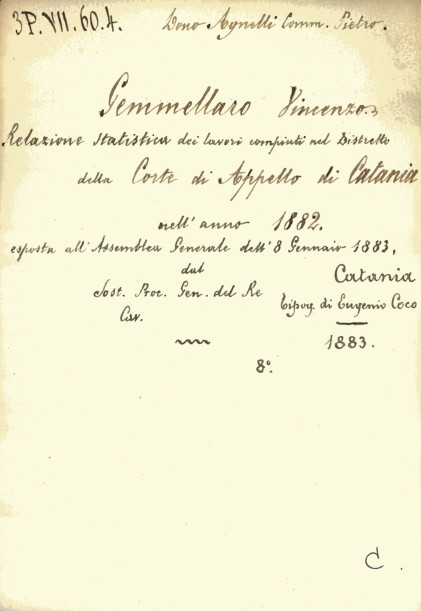 3P.VII.60.4. Dono Agnelli Comm. Pietro.
Gemmellaro Vincenzo
Relazione statistica dei lavori compiuti nel Distretto
della Corte di Appello di Catania
nell'anno 1882.
esposta all'Assemblea Generale dell'8 Gennaio 1883,
dal
Sost. Proc. Gen. del Re
Cav.
Catania
Tipog. di Eugenio Coco
1883.
8º.
C.